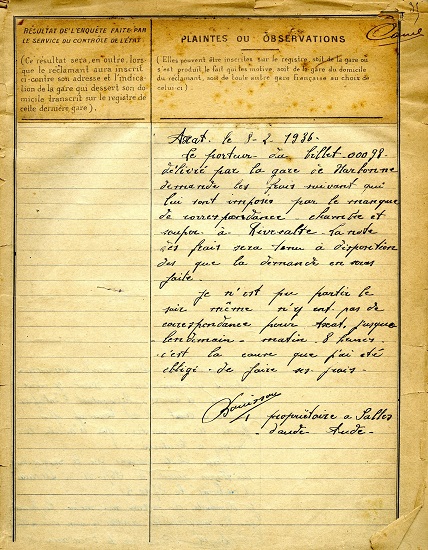 RÉSULTAT DE L'ENQUÊTE FAITE PAR
LE SERVICE DU CONTRÔLE DE L'ÉTAT
(Ce résultat sera, en outre, lorsque
le réclamant aura inscrit
ci-contre son adresse et l'indication
de la gare qui dessert son domicile
transcrit sur le registre de
cette dernière gare).
PLAINTES OU OBSERVATIONS
(Elles peuvent être inscrites sur le registre, soit de la gare où
s'est produit le fait qui les motive, soit de la gare du domicile
du réclamant, soit de toute autre gare française au choix de
celui-ci)
Axat. le 8-2-1936-
Le porteur du billet 00098
délivré par la gare de Narbonne
demande les frais suivant qui
lui sont imposés par le manque
de correspondance - chambre et
souper à Rivesalte. La note
des frais sera tenu à disposition
des que la demande en sera
faite.
Je n'est peu partir le
soir même n'y ent pas de
correspondance pour Axat, jusque
lendemain - matin 8 heures.
c'est la cause que j'ai été
obligé de faire ses frais.
propriétaire a Salles
d'aude - Aude -